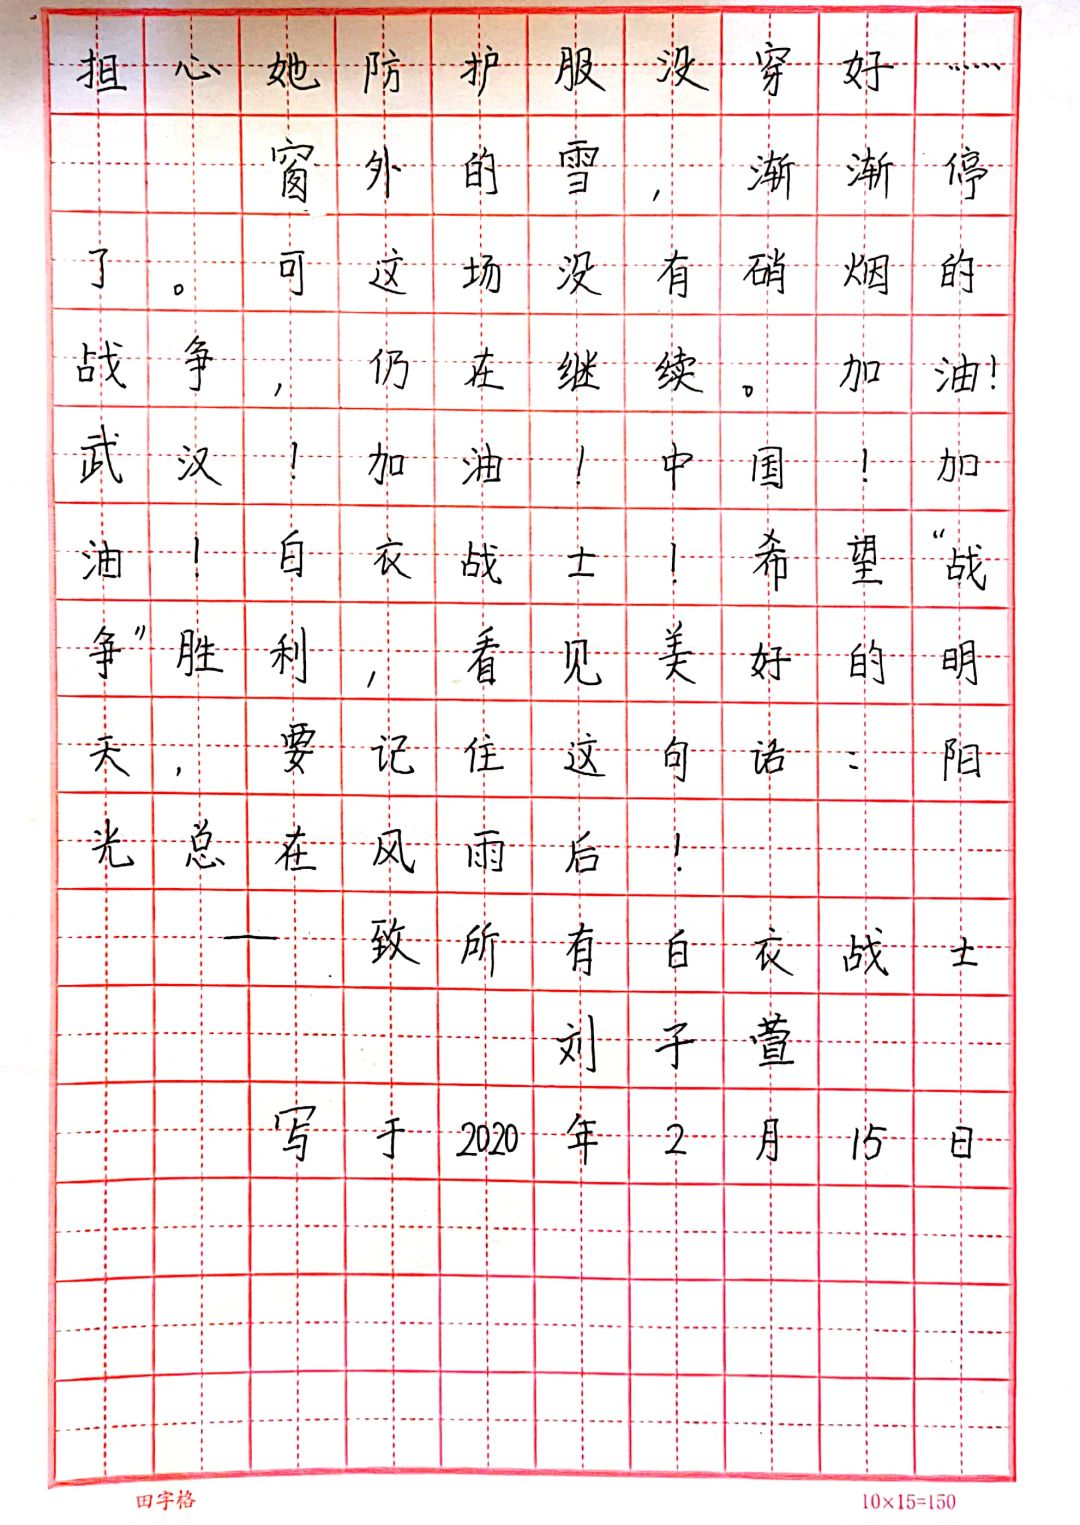 担心她防护服没穿好……
窗外的雪，渐渐停
了。可这场没有硝烟的
战争，仍在继续。加油！
武汉！加油！中国！加
油！白衣战士！希望“战
争”胜利，看见美好的明
天，要记住这句话：阳
光总在风雨后！
—致所有白衣战士
刘子萱
写于2020年2月15日
田字格 10×15=150